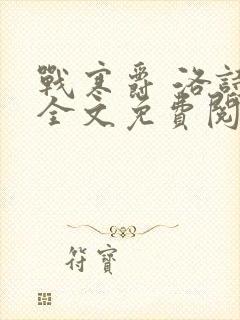 戰寒爵 洛詩
全文免費閱
符寶